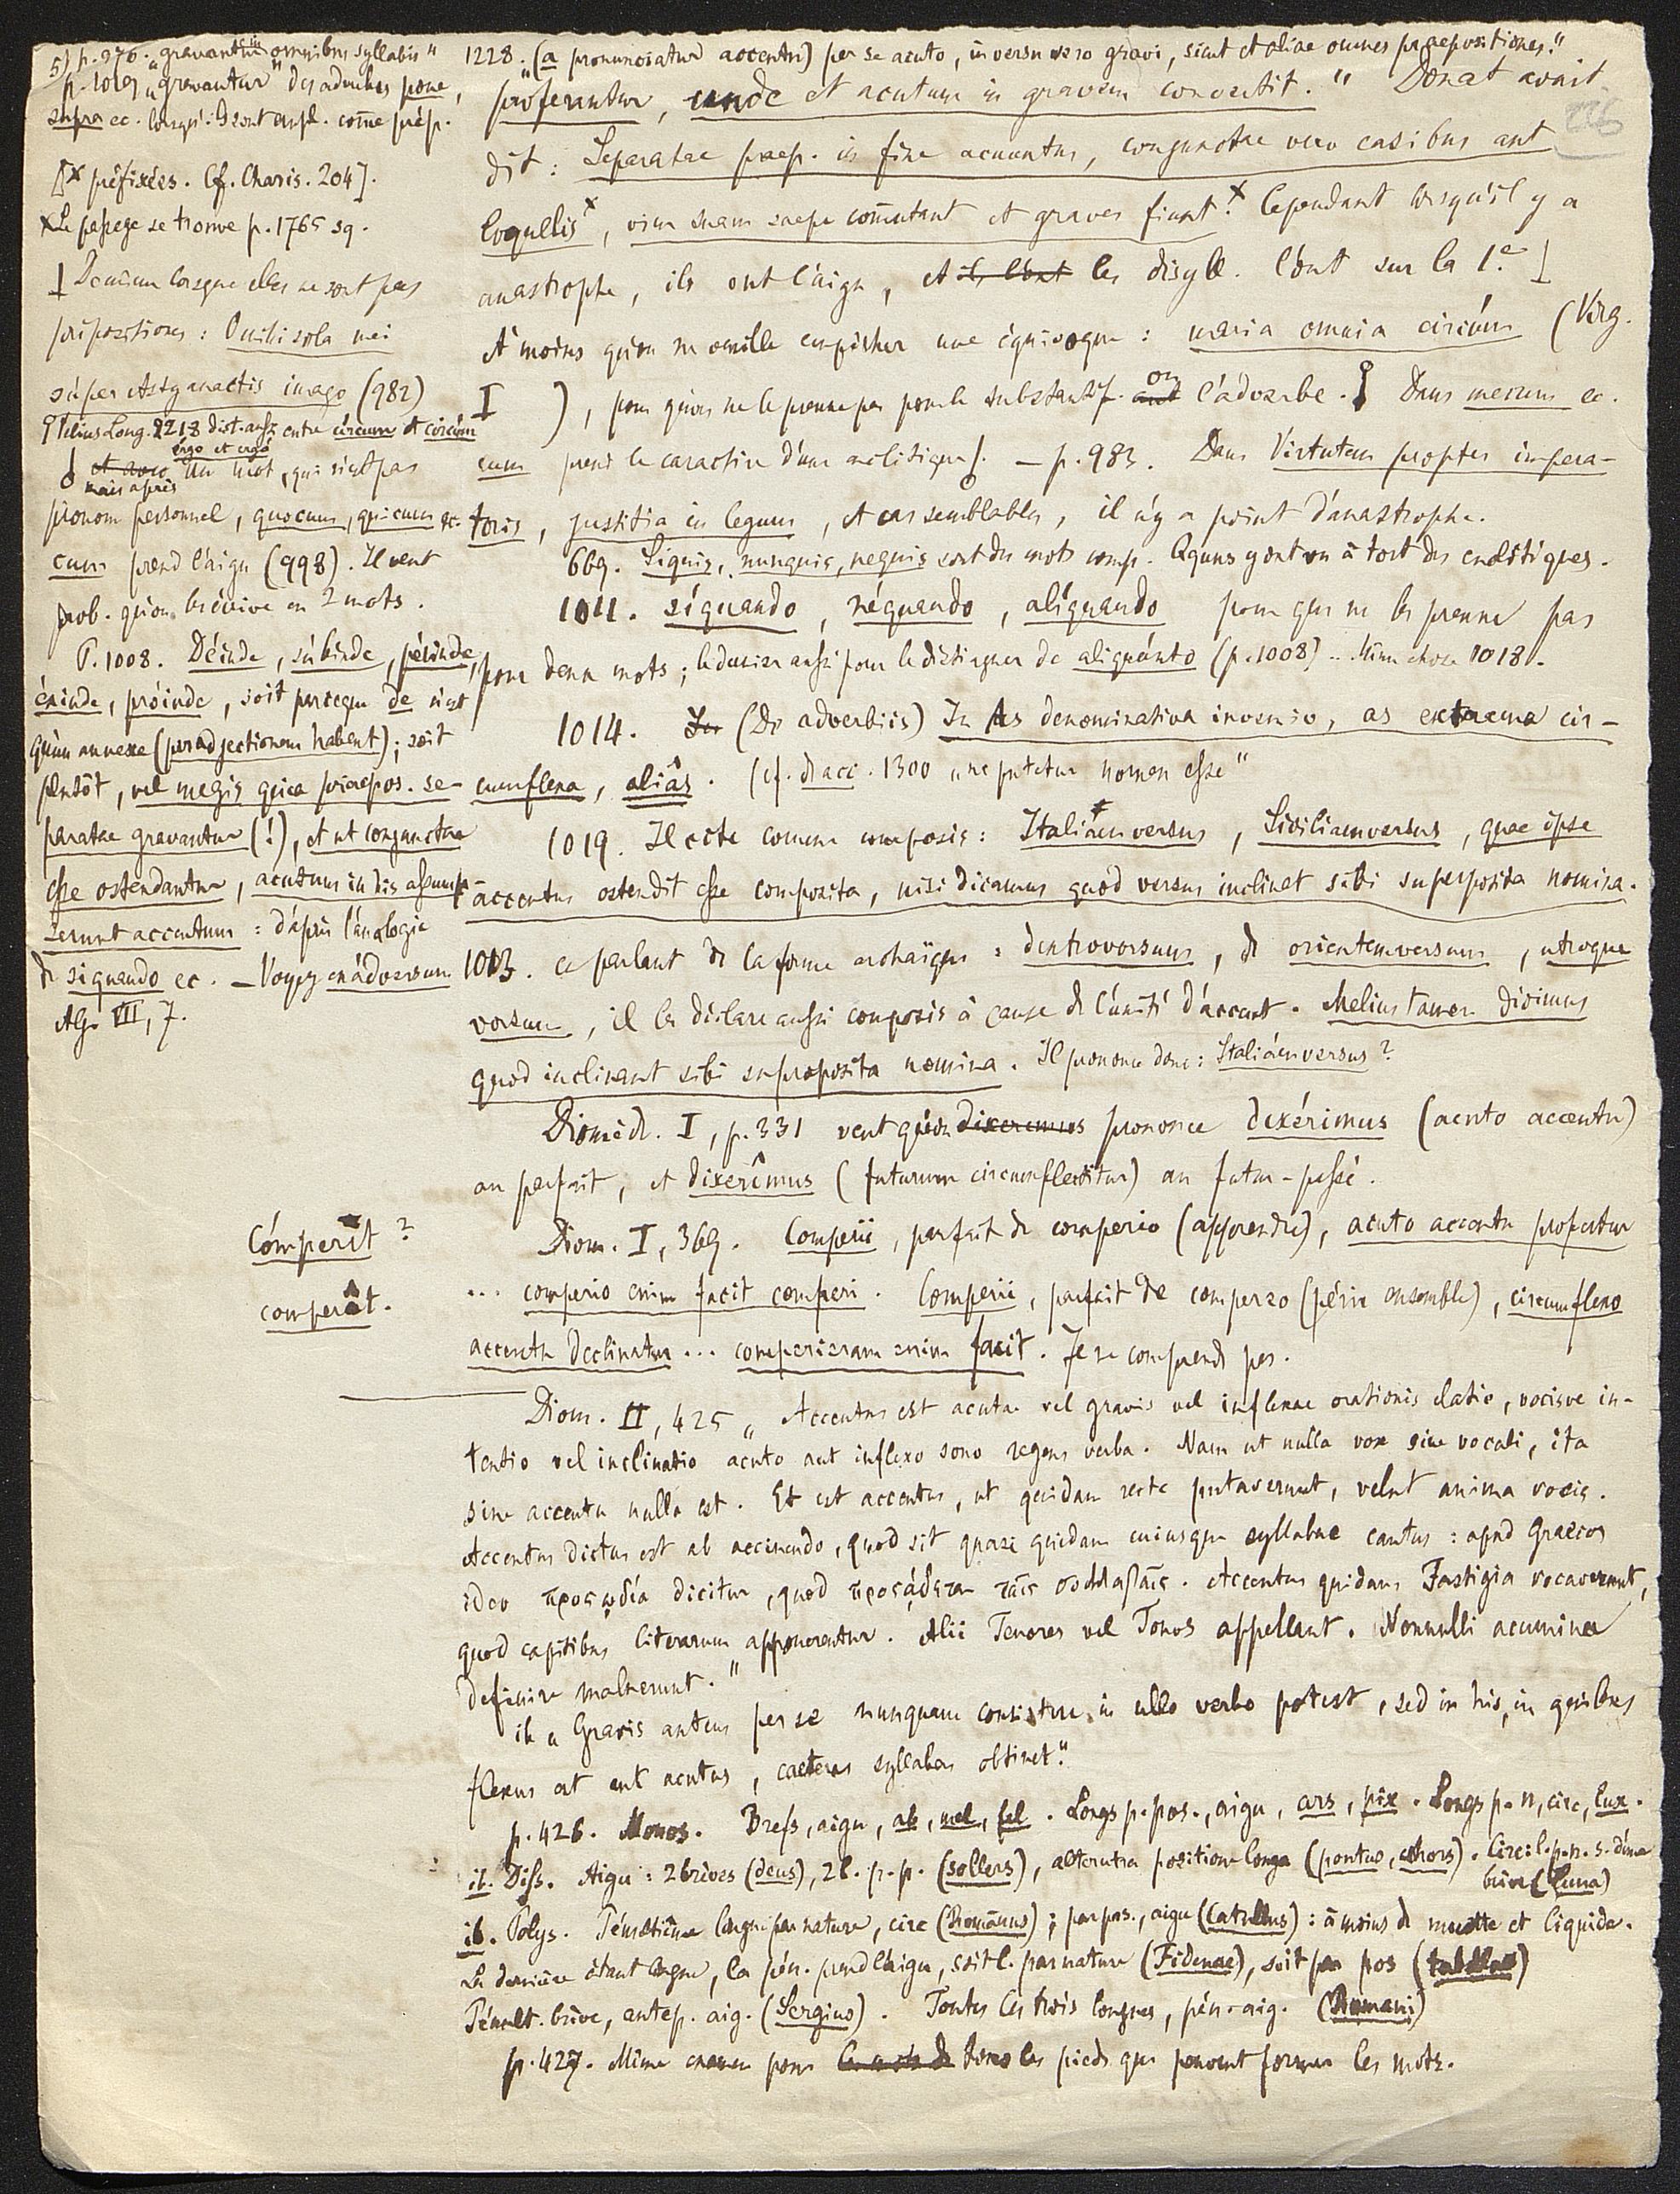 5) p. 976. „gravantur in omnibus syllabis"
p. 1019 „gravantur" des adverbes pone,
supra ec. lorsqu'ils sont empl. come prép.
[x préfixées. Cf. Charis. 204].
x Le passage se trouve p. 1765 sq.
⊥ De même lorsque elles ne sont pas
prépositions: O mihi sola mei
súper Astyanactis imago (982)
Velius Long. 2218 dist. aussi entre círcum et circúm
érgo et ergó
et avec un mot, qui n'est pas
mais après
pronom personnel, quocum, quicum ec.
cum prend l'aigu (998). Il veut
prob. qu'on les écrive en 2 mots.
P. 1008. Déinde, súbinde, périnde,
éxinde, próinde, soit parceque de n'est
qu'un annexe (per adjectionem habent); soit
plutôt, vel magis quia praepos. se-
paratae gravantur (!), et ut conjunctae
esse ostendantur, acutum in his assump-
serunt accentum: d'après l'analogie
de siquando ec. – Voyez exádversum
AG. VII, 7.
Cómperit?
comperît.
226
1228. (a pronunciatur accentu) per se acuto, in versu vero gravi, sicut et aliae omnes praepositiones."
proferantur, unde et acutum in gravem convertit." Donat avait
dit: Separatae praep. in fine acuuntur, conjunctae vero casibus aut
loquellis x, vim suam saepe comutant et graves fiunt. x Cependant lorsqu'il y a
anastrophe, ils ont l'aigu, et il l'ont les disyll. l'ont sur la 1e. ⊥
A moins qu'on ne veuille empêcher une équivoque: maria omnia circúm (Virg.
I ), pour qu'on ne le prenne pas pour le substantif. aut ou l'adverbe. Dans mecum ec.
cum prend le caractère d'une enclitique. – p. 983. Dans Virtutem propter impera-
toris, justitia in legum, et cas semblables, il n'y a point d'anastrophe.
669. Siquis, nunquis, nequis sont des mots comp. Qquns y ont vu à tort des enclitiques.
1011. síquando, néquando, alíquando pour que ne les prenne pas
pour deux mots; le dernier aussi pour le distinguer de aliquánto (p. 1008). Même chose 1018.
1014. In (De adverbiis) In As denominativa invenio, as extrema cir-
cumflexa, aliâs. (cf. de acc. 1300 „ne putetur nomen esse"
1019. Il cite comme composés: Italiámversus, Siciliamversus, quae ipse
accentus ostendit esse composita, nisi dicamus quod versus inclinet sibi superposita nomina.
1013. en parlant de la forme archaïque: dextrovorsum, de orientemversum, utroque
vorsum, il les déclare aussi composés à cause de l'unité d'accent. Melius tamen dicimus
quod inclinant sibi supraposita nomina. Il prononce donc: Italiámversus?
Diomède. I, p. 331 veut qu'on dixerimus prononce dixérimus (acuto accentu)
au parfait, et dixerîmus (futurum circumflectitur) au futur-passé.
Diom. I, 369. Comperii, parfait de comperio (apprendre), acuto accentu profertur
... comperio enim facit comperi. Comperii, parfait de compereo (périr ensemble), circumflexo
accentu declinatur ... comperieram enim facit. Je ne comprends pas.
Diom. II, 425 „Accentus est acutae vel gravis vel inflexae orationis elatio, vocisve in-
tentio vel inclinatio acuto aut inflexo sono regens verba. Nam ut nulla vox sine vocali, ita
sine accentu nulla est. Et est accentus, ut quidam recte putaverunt, velut anima vocis.
Accentus dictus est ab accinendo, quod sit quasi quidam cuiusque syllabae cantus: apud Graecos
ideo προσῳδία dicitur, quod προσᾴδεται ταῖς συλλαβαῖς. Accentus quidam Fastigia vocaverunt,
quod capitibus literarum apponerentur. Alii Tenores vel Tonos appellant. Nonnulli acumina
definire maluerunt."
ib „Gravis autem per se nunquam consistere in ullo verbo potest, sed in his, in quibus
flexus est aut acutus, caeteras syllabas obtinet."
p. 426. Monos. Brefs, aigu, ab, mel, fel. Longs p. pos., aigu, ars, pix. Longs p. n, circ, lux.
ib. Diss. Aigu: 2 brèves (deus), 2 l. p. p. (sollers), alterutra positione longa (pontus, cohors). Circ: l. p. n. s. d'une
brève (Luna)
ib. Polys. Pénultième longue par nature, circ (Românus); par pos., aigu (Catullus): à moins de muette et liquide.
La dernière étant longue, la pén. prend l'aigu, soit l. par nature (Fidenae), soit par pos (tabellae)
Pénult. brève, antep. aig. (Sergius). Toutes les trois longues, pén. aig. (Romani)
p. 427. Même examen pour les mots de tous les pieds que peuvent former les mots.